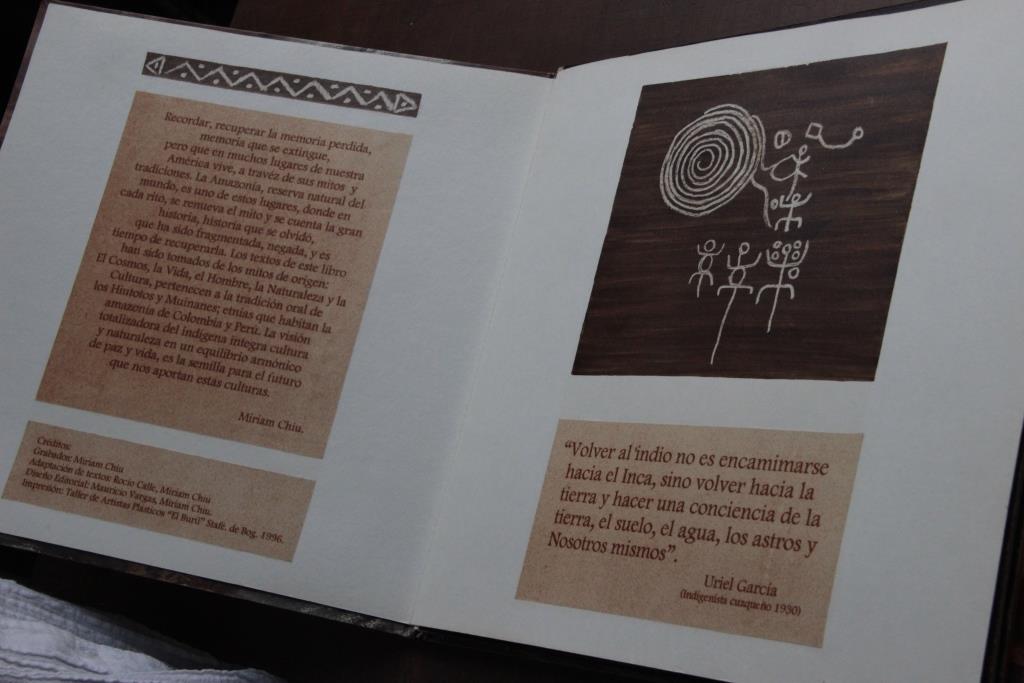 Recordar, recuperar la memoria perdida,
memoria que se extingue,
pero que en muchos lugares de nuestra
América vive, a travéz de sus mitos y
tradiciones. La Amazonía, reserva natural del
mundo, es uno de estos lugares, donde en
cada rito, se renueva el mito y se cuenta la gran
historia, historia que se olvidó,
que ha sido fragmentada, negada, y es
tiempo de recuperarla. Los textos de este libro
han sido tomados de los mitos de origen:
El Cosmos, la Vida, el Hombre, la Naturaleza y la
Cultura, pertenecen a la tradición oral de
los Huitotos y Muinanes; etnias que habitan la
amazonía de Colombia y Perú. La visión
totalizadora del indígena integra cultura
y naturaleza en un equilibrio armónico
de paz y vida, es la semilla para el futuro
que nos aportan estas culturas.
Miriam Chiu.
Créditos:
Grabados: Miriam Chiu
Adaptación de textos: Rocío Calle, Miriam Chiu
Diseño Editorial: Mauricio Vargas, Miriam Chiu.
Impresión: Taller de Artistas Plásticos "El Buril" Stafé. de Bog. 1996.
"Volver al indio no es encamimarse
hacia el Inca, sino volver hacia la
tierra y hacer una conciencia de la
tierra, el suelo, el agua, los astros y
Nosotros mismos".
Uriel García
(Indigenista cuzqueño 1930)